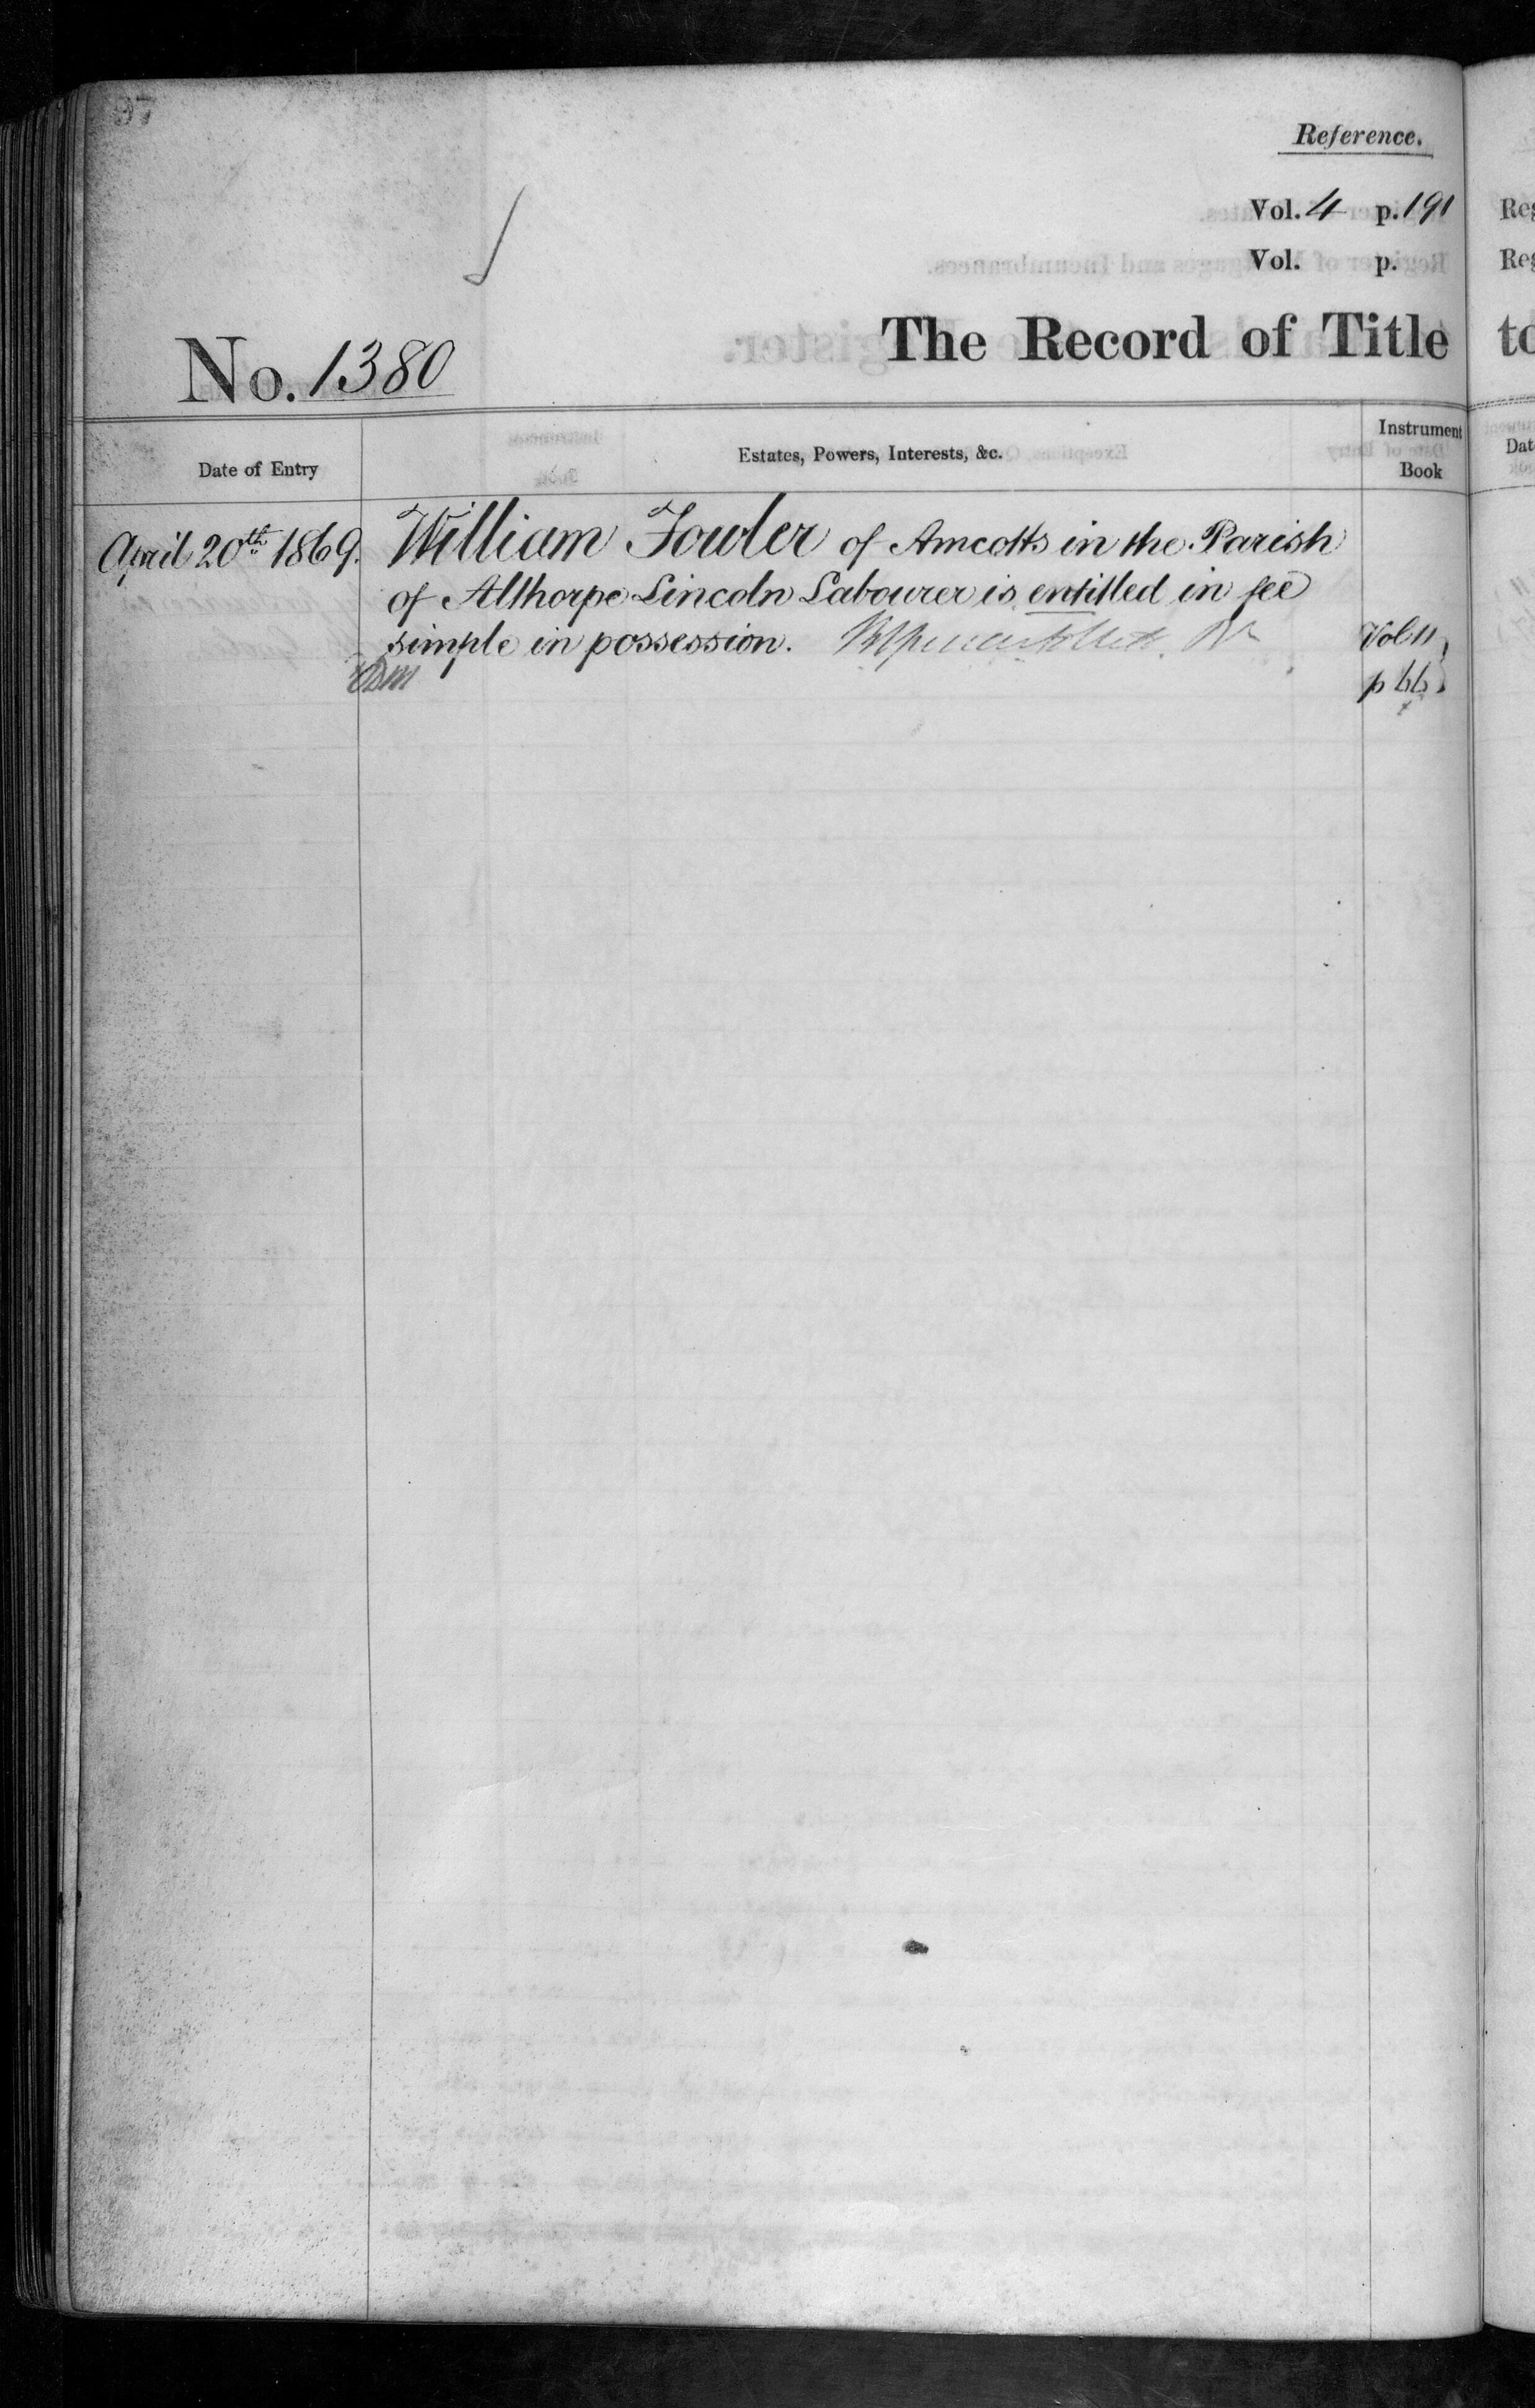 97
Reference.
Vol. 4 p. 191
Vol. p.
The Record of Title
No. 1380
Date of Entry
Estates, Powers, Interests, &c.
Instrument Book
April 20th 1869.
William Fowler of Amcotts in the Parish
of Althorpe Lincoln Labourer is entitled in fee
simple in possession.
Vol 11
p 66